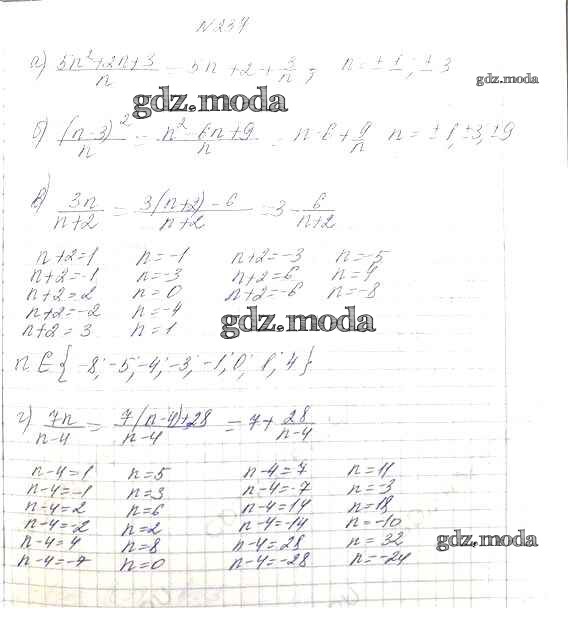 N 237
а) (5n²+2n+3)/n = 5n+2+3/n; n=±1; ±3
gdz.moda
gdz.moda
б) (n-3)²/n = (n²-6n+9)/n = n-6+9/n n=±1,±3,±9
в) 3n/(n+2) = (3(n+2)-6)/(n+2) = 3-6/(n+2)
n+2=1 n=-1 n+2=-3 n=-5
n+2=-1 n=-3 n+2=6 n=4
n+2=2 n=0 n+2=-6 n=-8
n+2=-2 n=-4
n+2=3 n=1
gdz.moda
n ∈ {-8; -5; -4; -3; -1; 0; 1; 4}
г) 7n/(n-4) = (7(n-4)+28)/(n-4) = 7+28/(n-4)
n-4=1 n=5 n-4=7 n=11
n-4=-1 n=3 n-4=-7 n=-3
n-4=2 n=6 n-4=14 n=18
n-4=-2 n=2 n-4=-14 n=-10
n-4=4 n=8 n-4=28 n=32
n-4=-4 n=0 n-4=-28 n=-24
gdz.moda